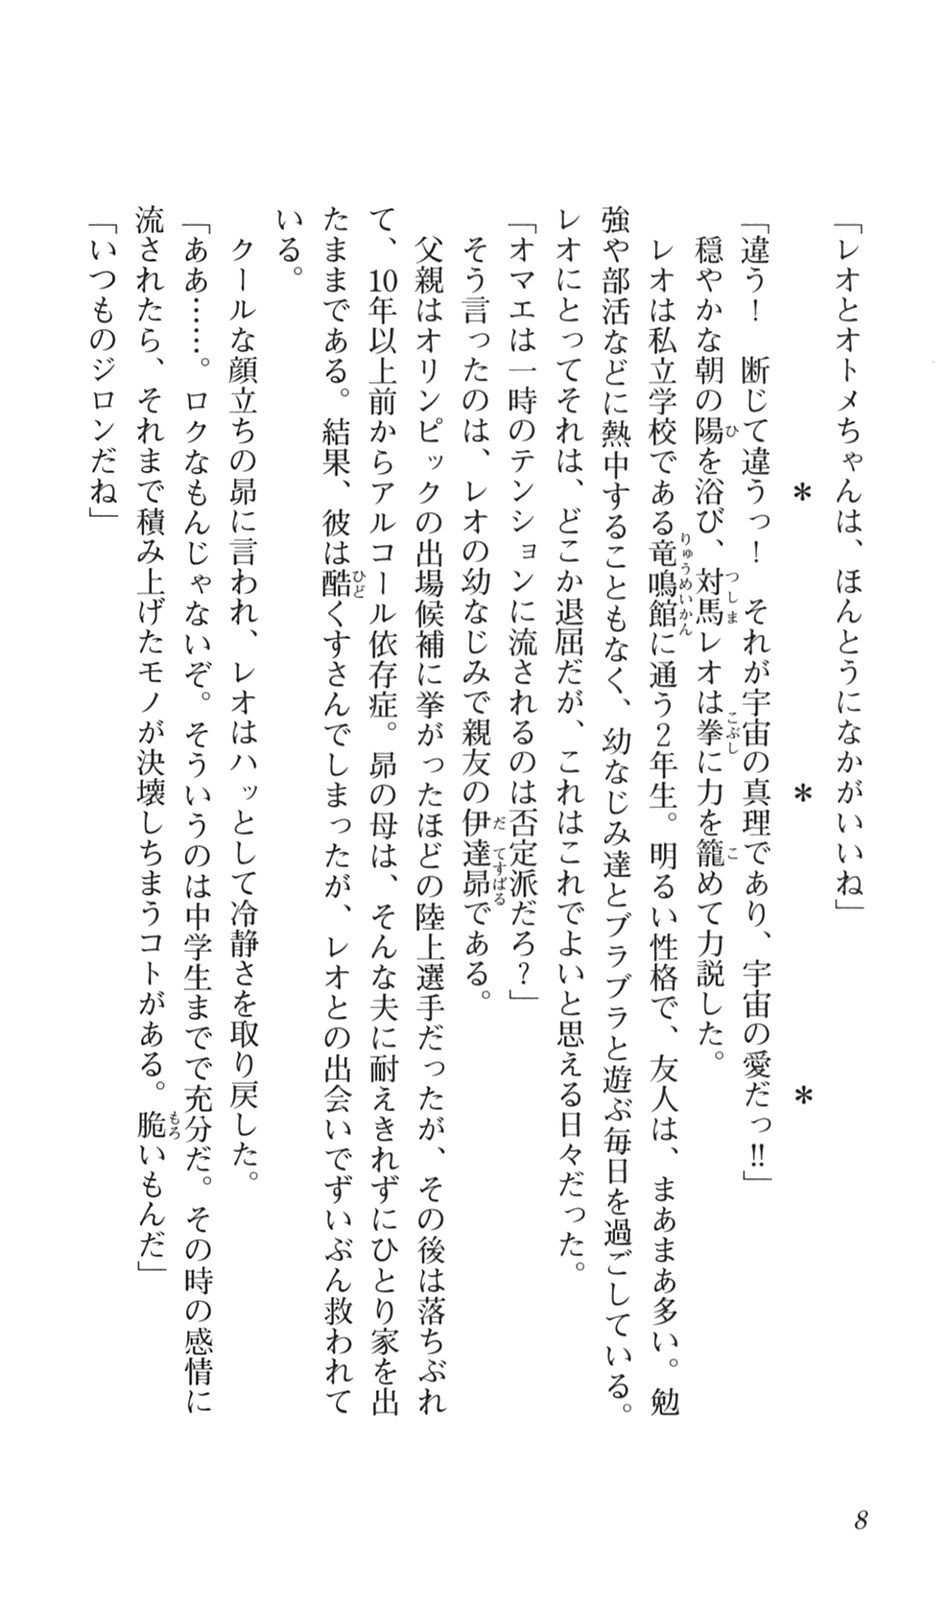 「レオとオトメちゃんは、ほんとうになかがいいね」
＊　＊　＊
「違う！　断じて違うっ！　それが宇宙の真理であり、宇宙の愛だっ!!」
穏やかな朝の陽を浴び、対馬レオは拳に力を籠めて力説した。
レオは私立学校である竜鳴館に通う２年生。明るい性格で、友人は、まあまあ多い。勉
強や部活などに熱中することもなく、幼なじみ達とブラブラと遊ぶ毎日を過ごしている。
レオにとってそれは、どこか退屈だが、これはこれでよいと思える日々だった。
「オマエは一時のテンションに流されるのは否定派だろ？」
そう言ったのは、レオの幼なじみで親友の伊達昴である。
父親はオリンピックの出場候補に挙がったほどの陸上選手だったが、その後は落ちぶれ
て、10年以上前からアルコール依存症。昴の母は、そんな夫に耐えきれずにひとり家を出
たままである。結果、彼は酷くすさんでしまったが、レオとの出会いでずいぶん救われて
いる。
クールな顔立ちの昴に言われ、レオはハッとして冷静さを取り戻した。
「ああ……。ロクなもんじゃないぞ。そういうのは中学生までで充分だ。その時の感情に
流されたら、それまで積み上げたモノが決壊しちまうコトがある。脆いもんだ」
「いつものジロンだね」
8